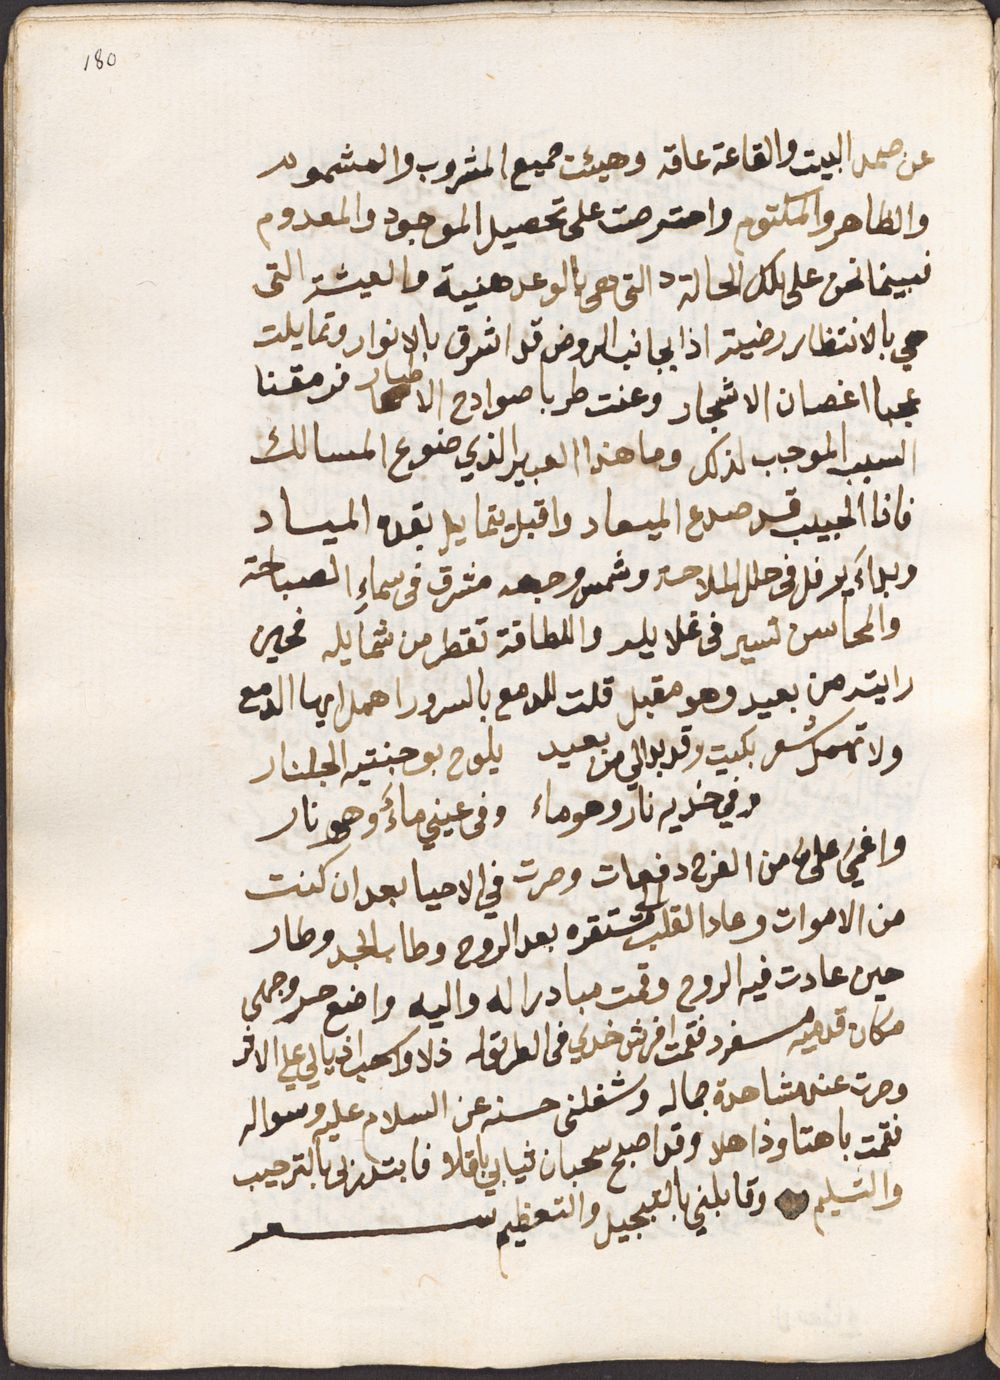 180
عن صمد البيت والقاعة عاقه وهيئت جميع المشروب والمشموم
والظاهر والمكتوم واحترصت على تحصيل الموجود والمعدوم
فبينما نحن على تلك الحالة التي هي بالوعد هنية والعيشة التي
هي بالانتظار رضية اذا بجانب الروض قد اشرق بالانوار وتمايلت
عجبا اغصان الاشجار وغنت طربا صوادح الاطيار فرمقنا
السبب الموجب لذلك وما هذا العبير الذي ضوع المسالك
فاذا الحبيب قد صدع الميعاد واقبل يتمايل بقده المياد
وبداء يرفل في حلل الملاحة وشمس وجهه مشرق في سماء الصباحة
والمحاسن تسير في غلايله واللطافة تقطر من شمايله فحين
رايته من بعيد وهو مقبل قلت للدمع بالسرور اهمل ايها الدمع
ولا تهمل شعر بكيت وقد بدا لي من بعيد يلوح بوجنتيه الجلنار
وفي خديه نار وهو ماء وفي عيني ماء وهو نار
واغمي علي من الفرح دفعات وصرت في الاحيا بعد ان كنت
من الاموات وعاد القلب الى مستقره بعد الروح وطاب الجسد وطار
حين عادت فيه الروح وقمت مبادرا له واليه واضع حر وجهي
مكان قدميه فقمت افرش خدي في الطريق له ذلا واسحب اذيالي على الاثر
وصرت عند مشاهدة جماله وشغلني حسنه عن السلام عليه وسواله
فقمت باهتا وذاهلا وقد اصبح سحبان ثيابي باقلا فابتدرني بالترحيب
والتسليم وقابلني بالتبجيل والتعظيم شعر